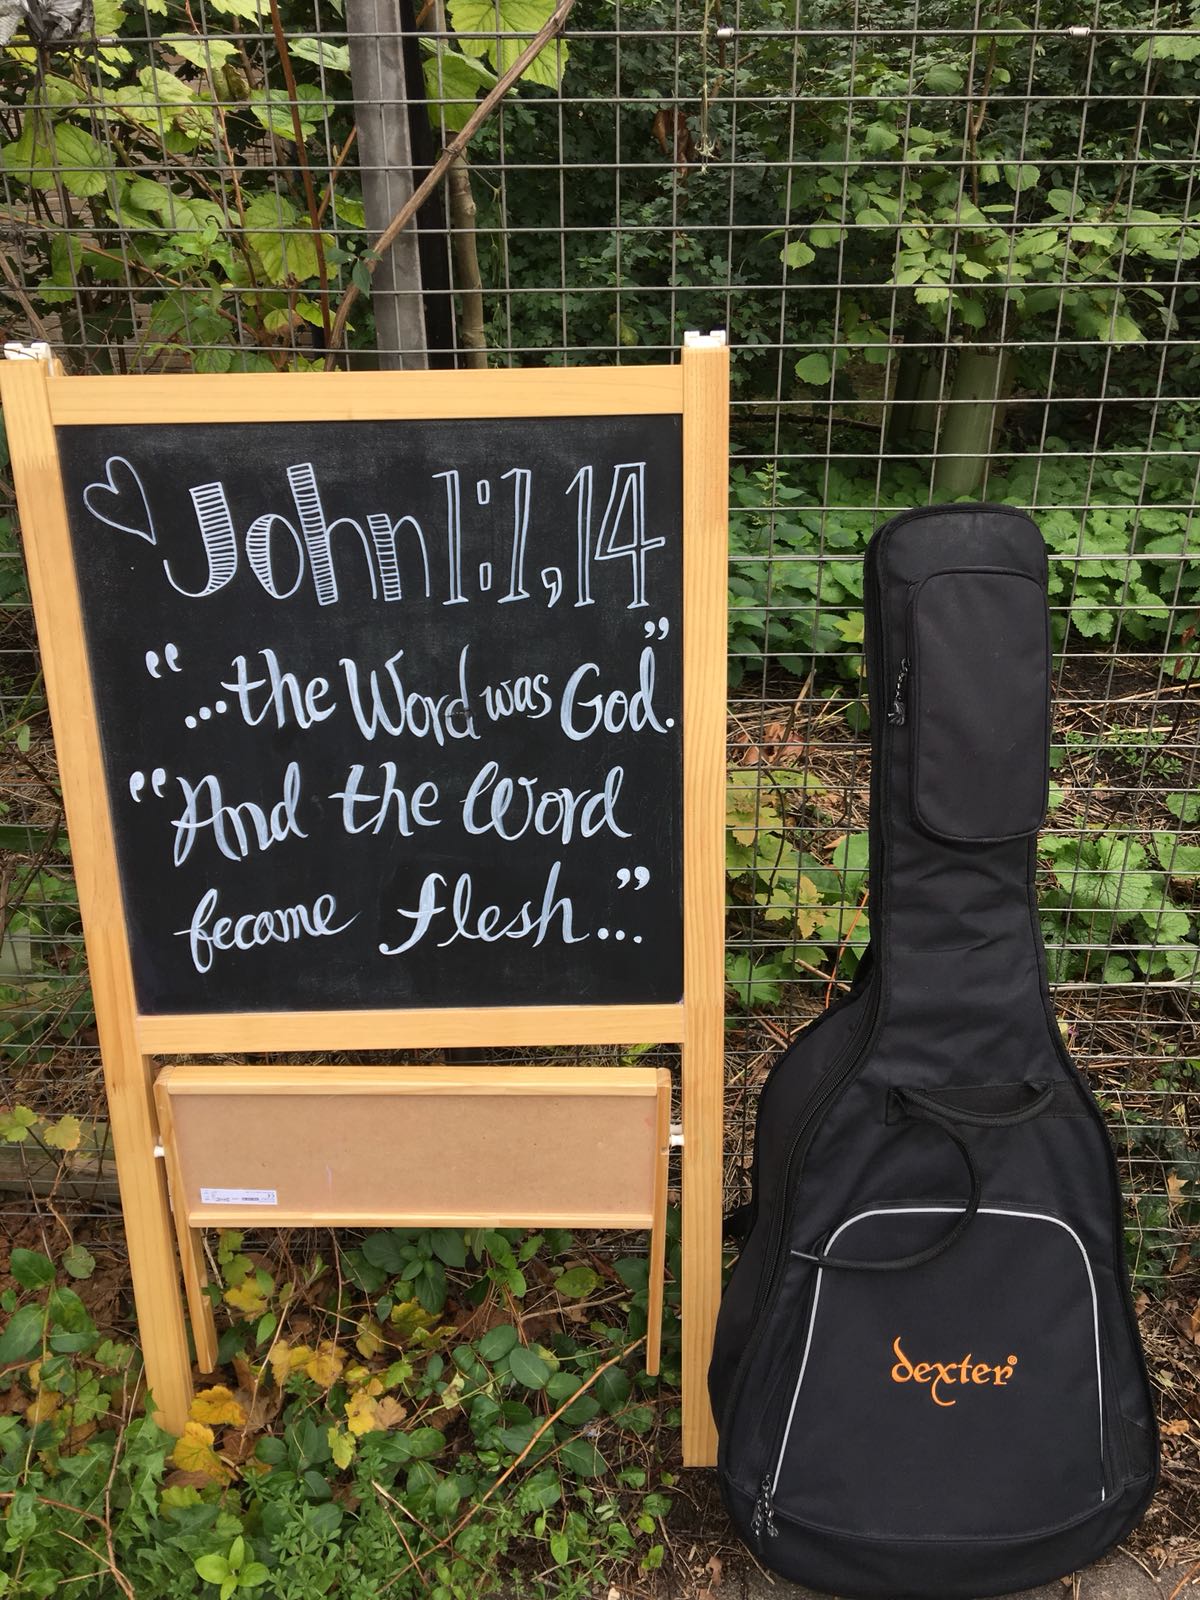 John 1:1,14
"...the Word was God."
"And the Word
became flesh..."
dexter®